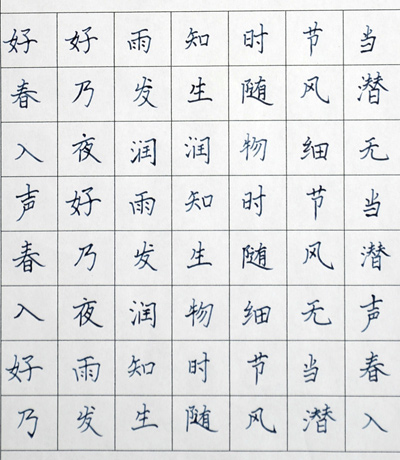 好好雨知时节当
春乃发生随风潜
入夜润润物细无
声好雨知时节当
春乃发生随风潜
入夜润物细无声
好雨知时节当春
乃发生随风潜入